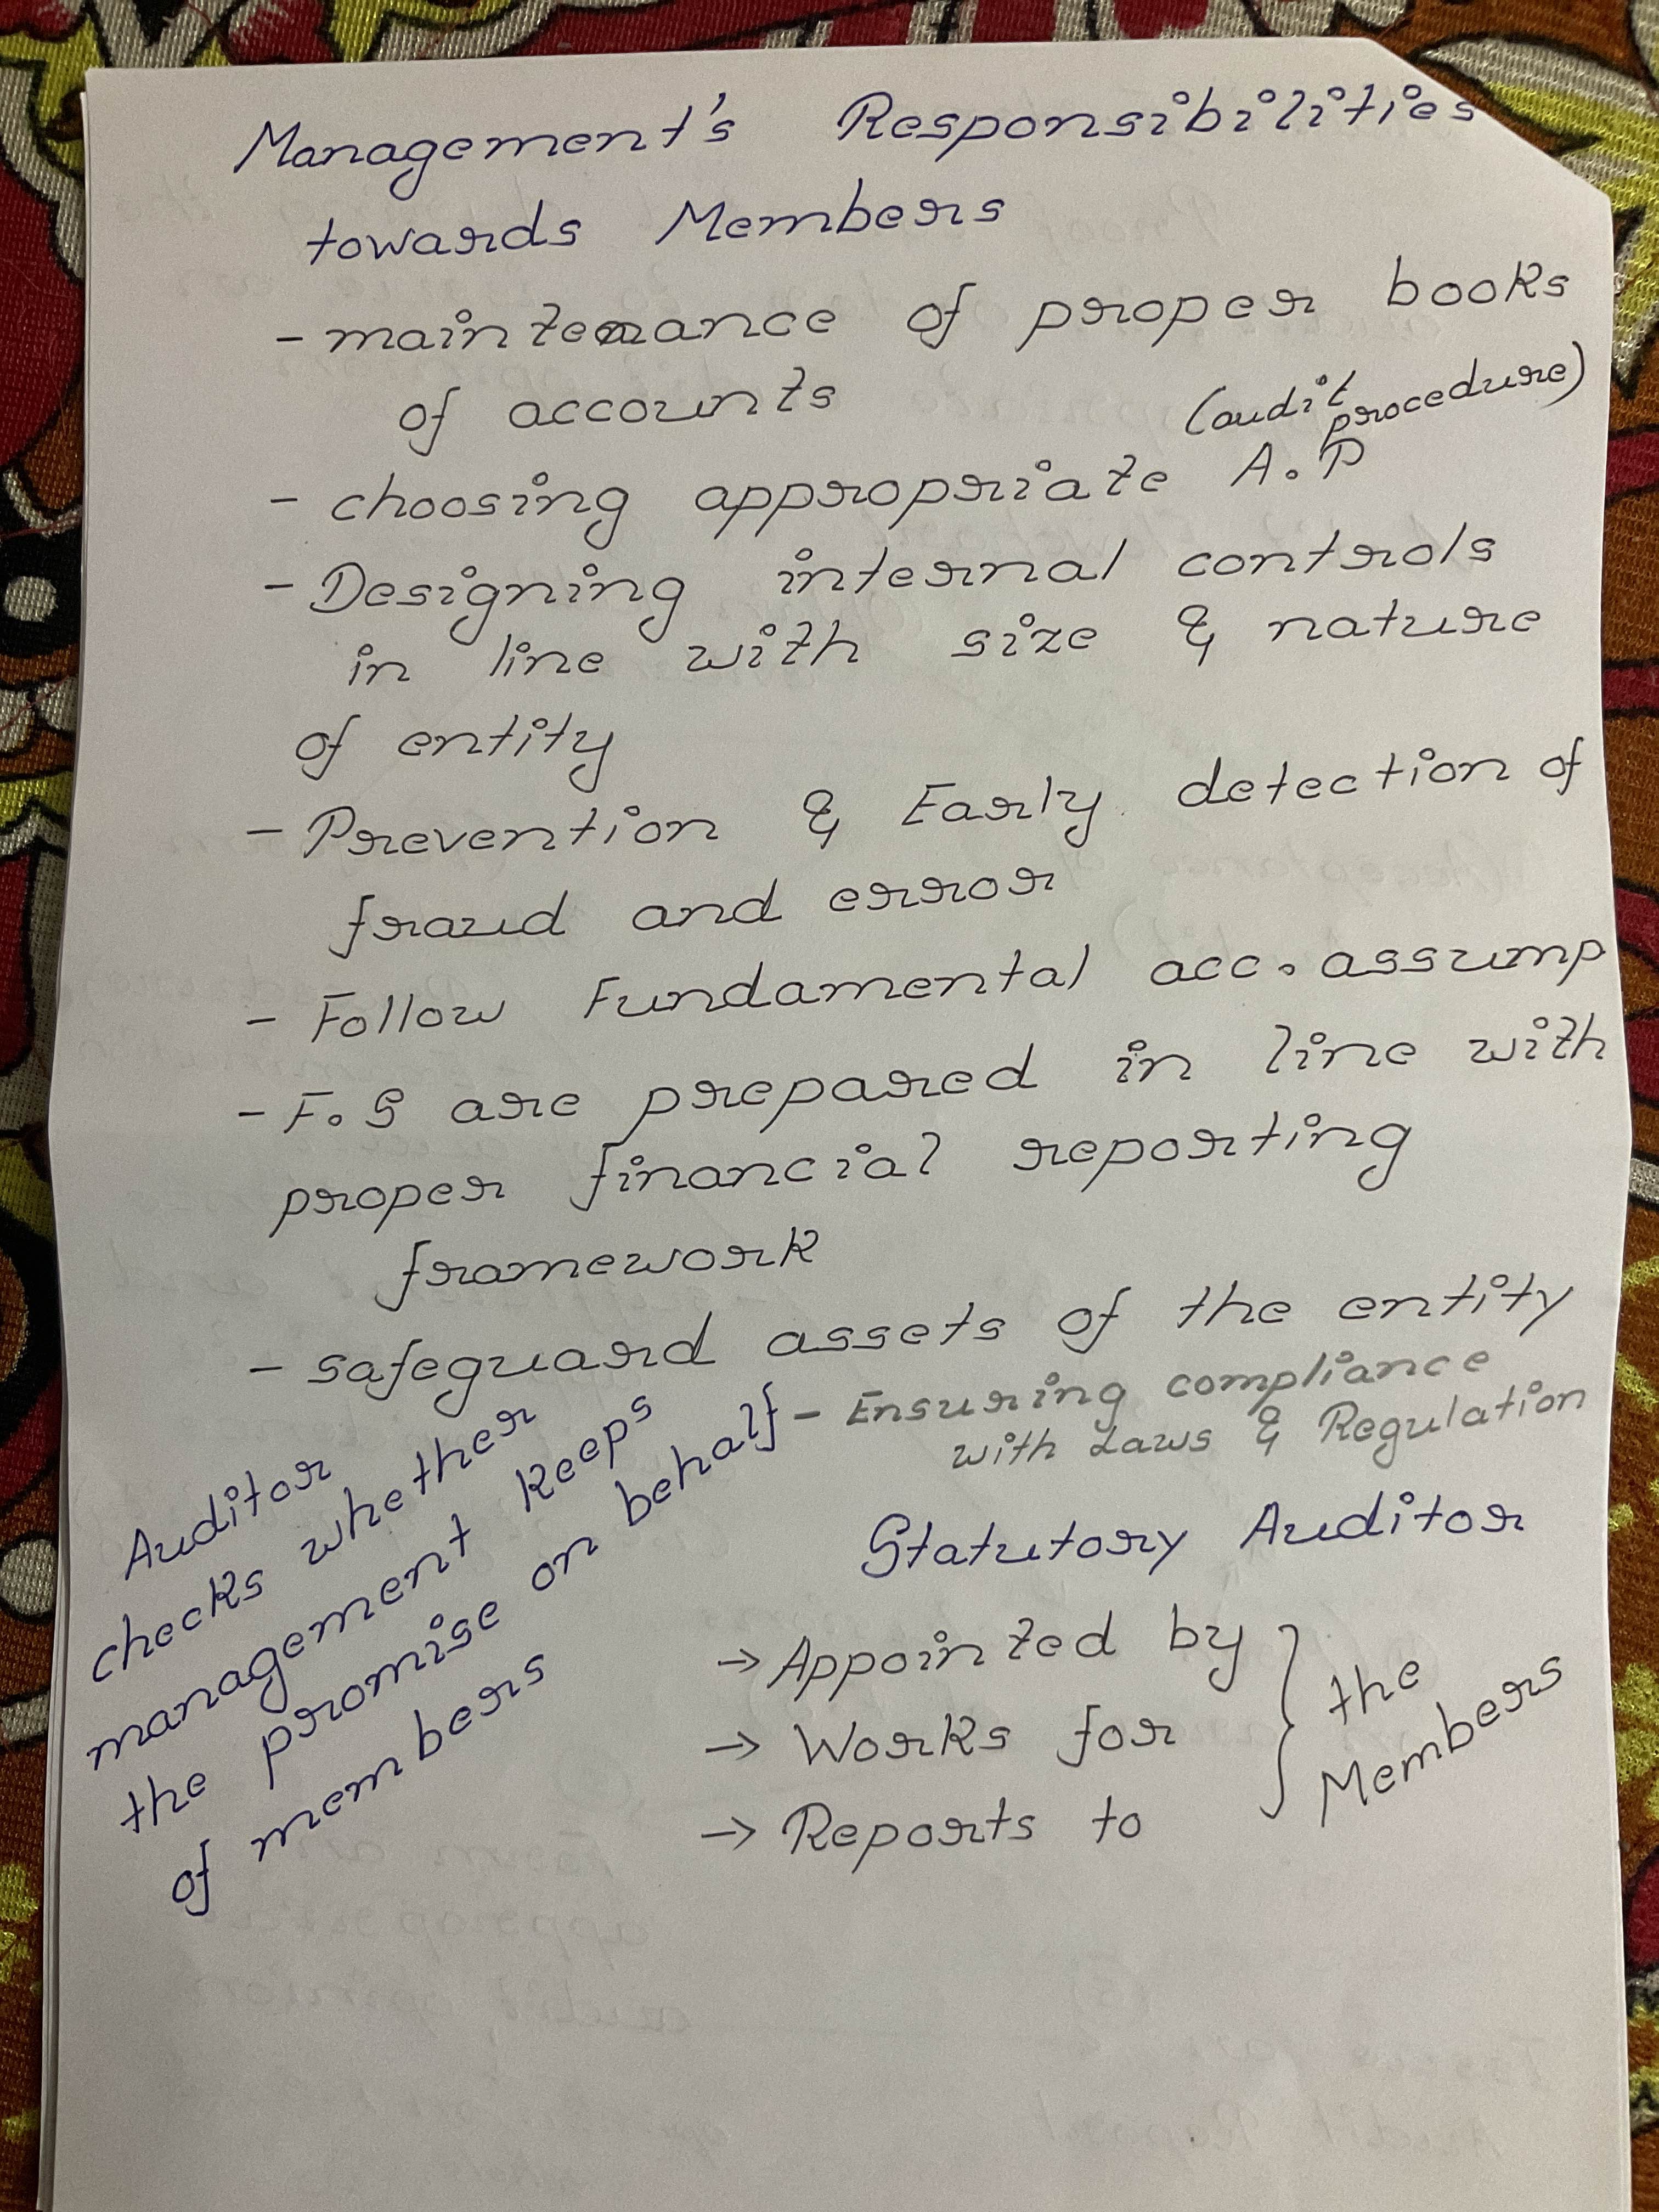 Management's Responsibilities
towards Members
- maintenance of proper books
of accounts
(audit procedure)
- choosing appropriate A.P
- Designing internal controls
in line with size & nature
of entity
- Prevention & Early detection of
fraud and error
- Follow Fundamental acc. assump
- F.S are prepared in line with
proper financial reporting
framework
- safeguard assets of the entity
- Ensuring compliance
with Laws & Regulation
Auditor
checks whether
management keeps
the promise on behalf
of members
Statutory Auditor
→ Appointed by
→ Works for
→ Reports to
} the
Members